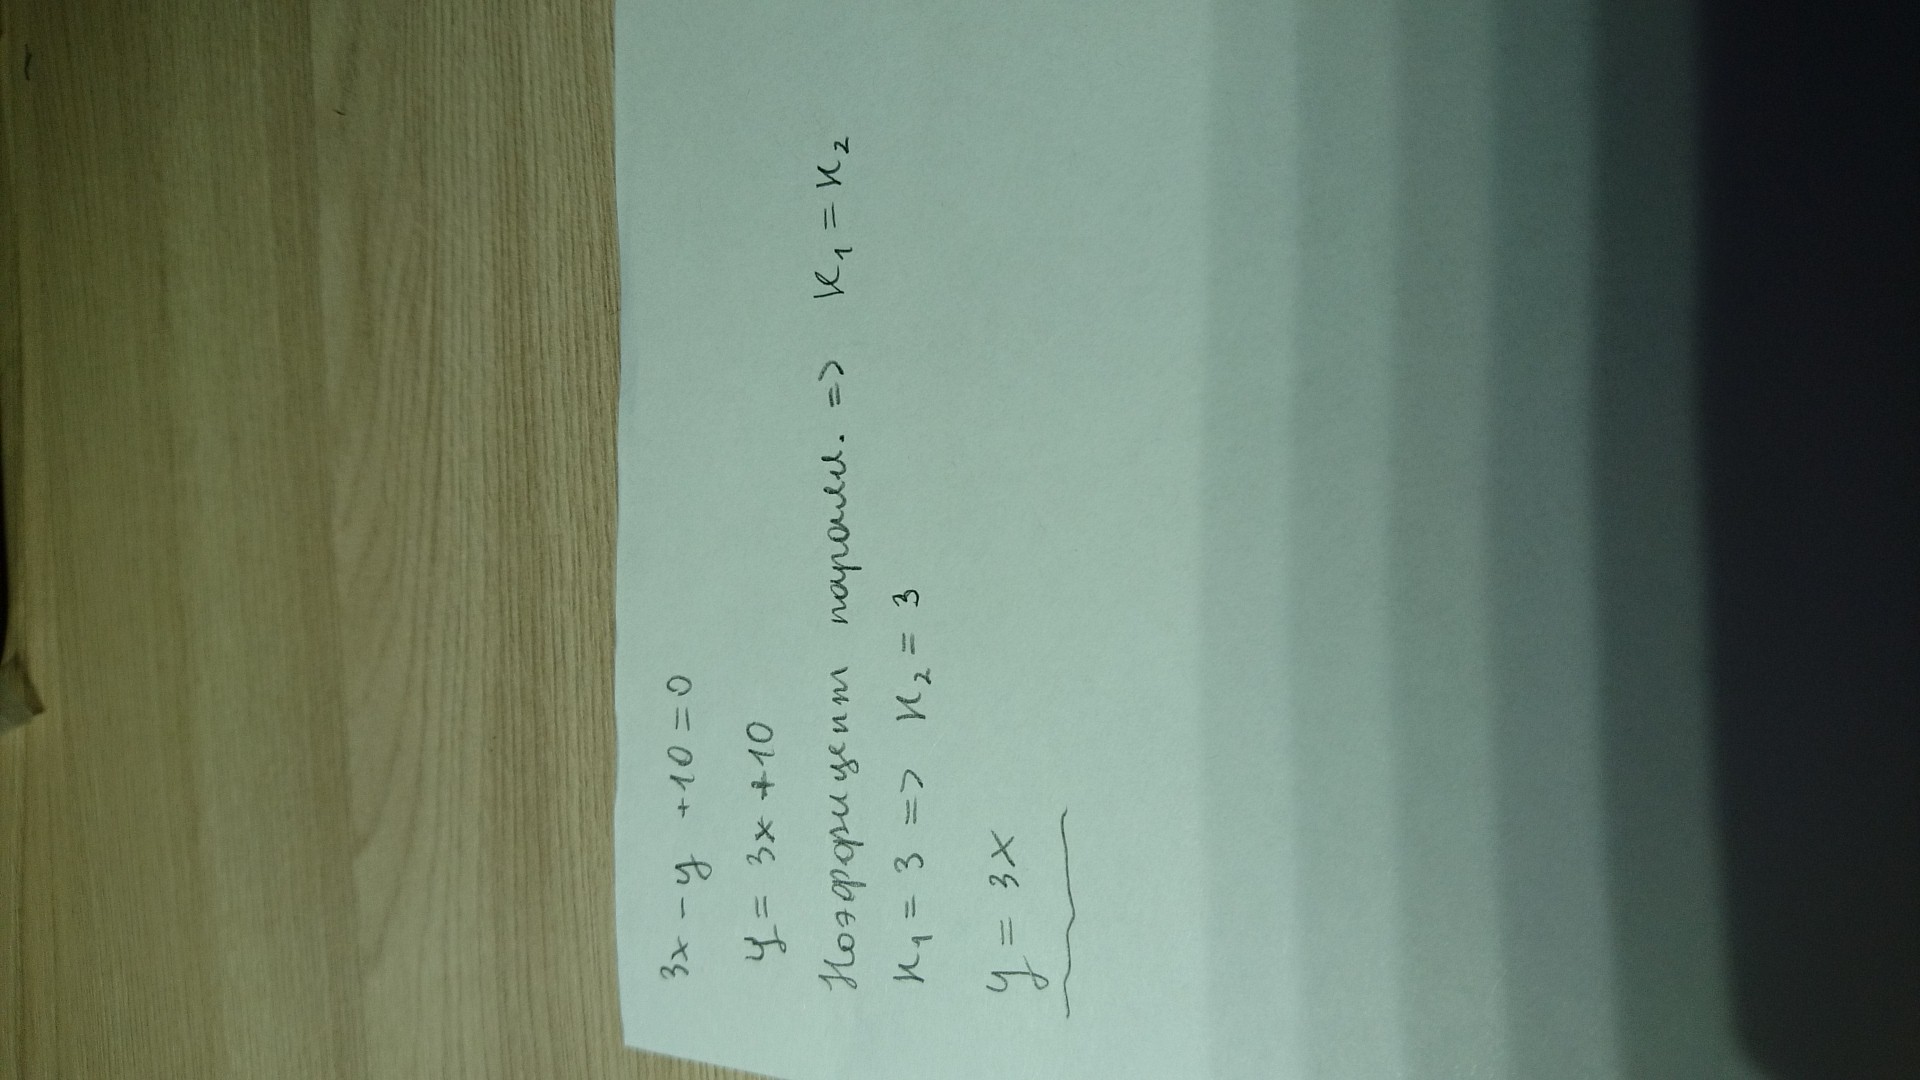 3x - y + 10 = 0
y = 3x + 10
Коэффициент паралл. => к₁ = к₂
к₁ = 3 => к₂ = 3
y = 3x